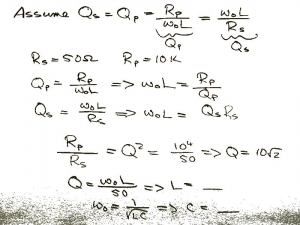 Assume Qs = Qp = Rp/ω₀L = ω₀L/Rs
Qp Qs
Rs = 50Ω Rp = 10K
Qp = Rp/ω₀L => ω₀L = Rp/Qp
Qs = ω₀L/Rs => ω₀L = QsRs
Rp/Rs = Q² = 10⁴/50 => Q = 10√2
Q = ω₀L/50 => L = __
ω₀ = 1/√LC => C = __